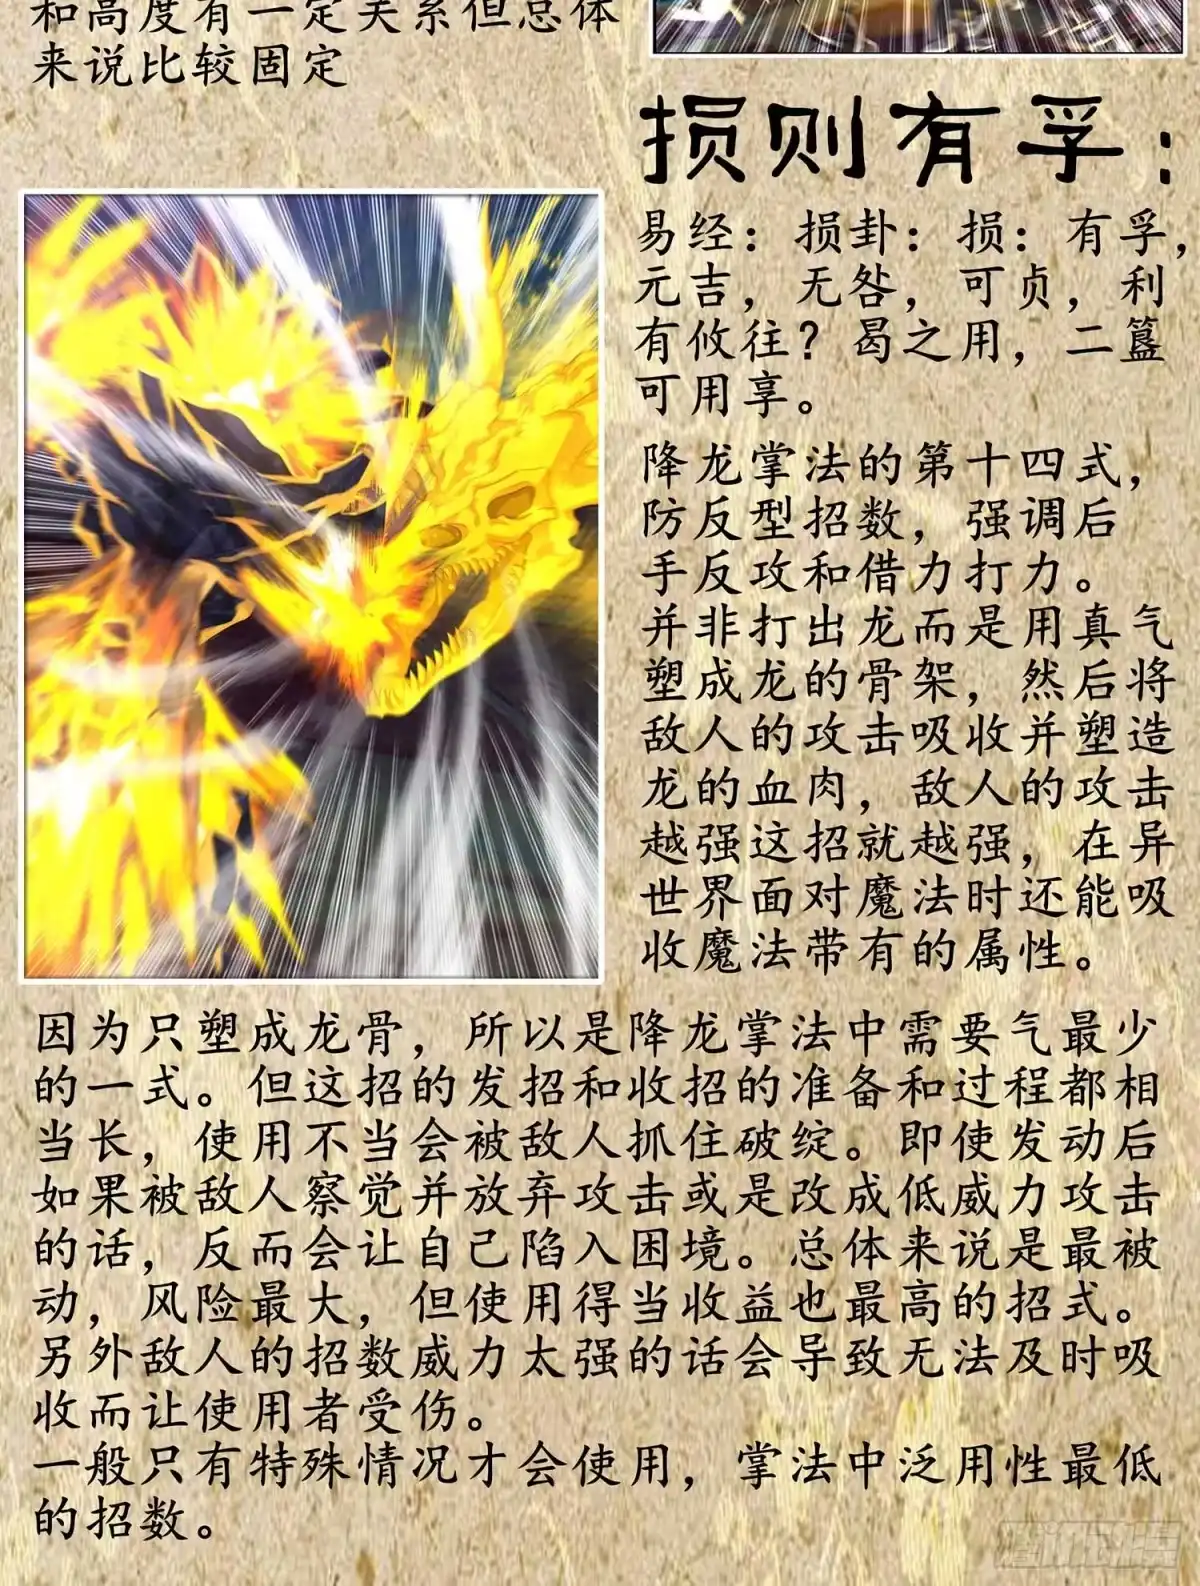 和高度有一定关系但总体
来说比较固定
损则有孚：
易经：损卦：损：有孚，
元吉，无咎，可贞，利
有攸往？曷之用，二簋
可用享。
降龙掌法的第十四式，
防反型招数，强调后
手反攻和借力打力。
并非打出龙而是用真气
塑成龙的骨架，然后将
敌人的攻击吸收并塑造
龙的血肉，敌人的攻击
越强这招就越强，在异
世界面对魔法时还能吸
收魔法带有的属性。
因为只塑成龙骨，所以是降龙掌法中需要气最少
的一式。但这招的发招和收招的准备和过程都相
当长，使用不当会被敌人抓住破绽。即使发动后
如果被敌人察觉并放弃攻击或是改成低威力攻击
的话，反而会让自己陷入困境。总体来说是最被
动，风险最大，但使用得当收益也最高的招式。
另外敌人的招数威力太强的话会导致无法及时吸
收而让使用者受伤。
一般只有特殊情况才会使用，掌法中泛用性最低
的招数。